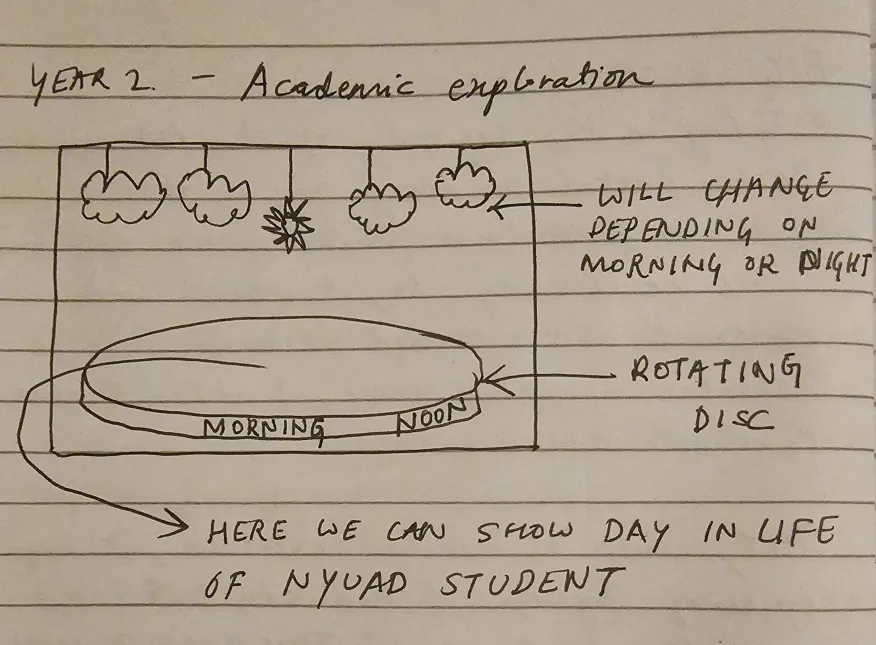 YEAR 2. - Academic exploration
WILL CHANGE
DEPENDING ON
MORNING OR NIGHT
ROTATING
DISC
MORNING NOON
HERE WE CAN SHOW DAY IN LIFE
OF NYUAD STUDENT